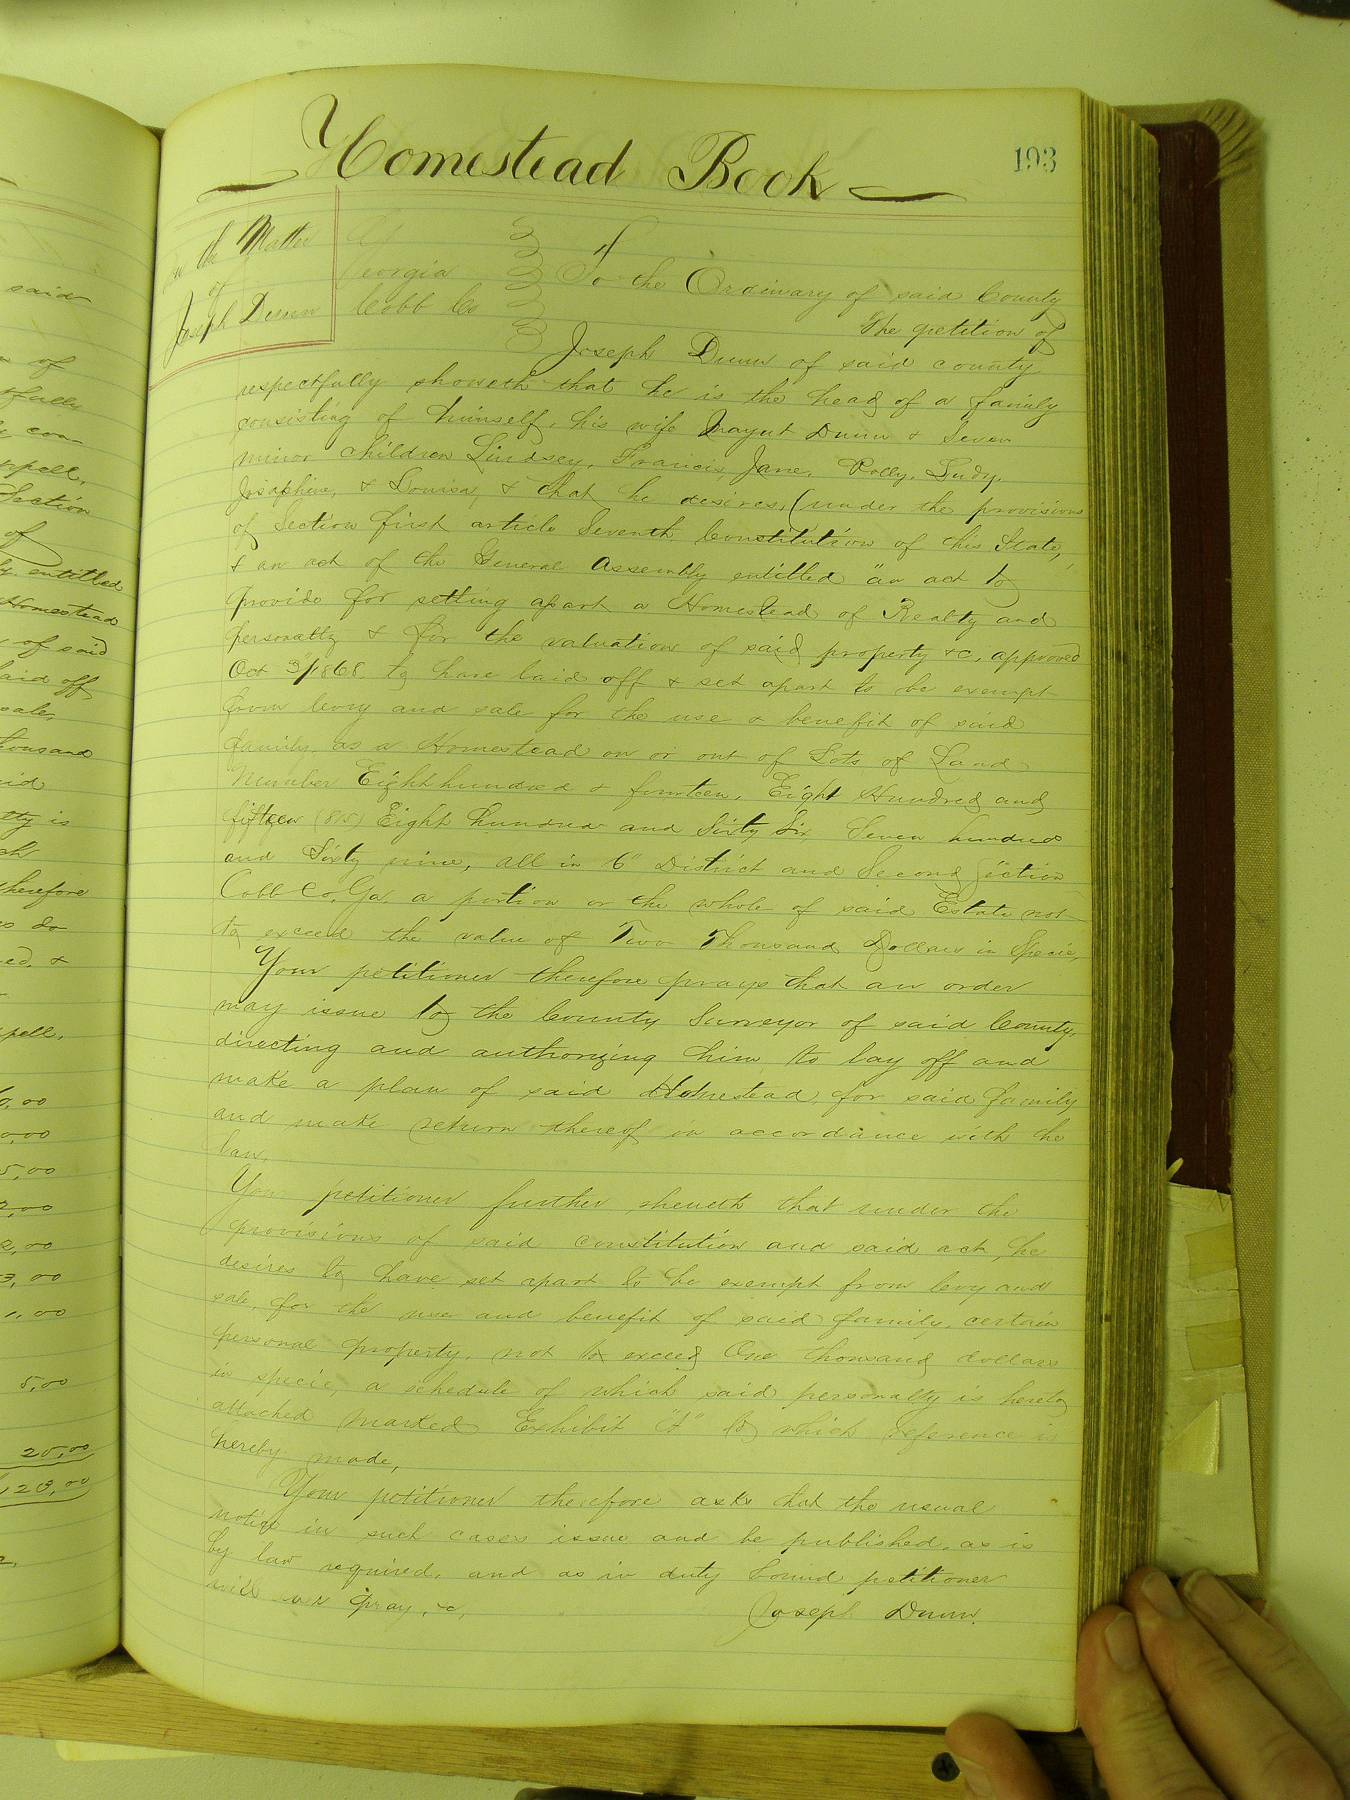 Homestead Book
193
In the Matter
of
Joseph Dunn
Georgia
Cobb Co
To the Ordinary of said County
The petition of
Joseph Dunn of said county
respectfully showeth that he is the head of a family
consisting of himself, his wife Dunn & Seven
minor children Lindsey, Francis, Jane, Polly, Judy,
Josaphine, & Louisa, & that he desires, (under the provisions
of Section first article Seventh Constitution of this State,
& an act of the General Assembly entitled "an act to
provide for setting apart a Homestead of Realty and
personalty & for the valuation of said property &c, approved
Oct 3/1868 to have laid off & set apart to be exempt
from levy and sale for the use & benefit of said
family, as a Homestead on or out of Lots of Land
Number Eight hundred & fourteen, Eight Hundred and
fifteen (815) Eight hundred and Sixty Six, Seven hundred
and Sixty nine, all in 16" District and Second Section
Cobb Co, Ga, a portion or the whole of said Estate not
to exceed the value of Two Thousand Dollars in Specie,
Your petitioner therefore prays that an order
may issue to the County Surveyor of said County,
directing and authorizing him to lay off and
make a plan of said Homestead, for said family
and make return thereof in accordance with the
law.
Your petitioner further sheweth that under the
provisions of said constitution and said act, he
desires to have set apart to be exempt from levy and
sale, for the use and benefit of said family, certain
personal property, not to exceed One thousand dollars
in specie, a schedule of which said personalty is hereto
attached marked Exhibit to which reference is
hereby made,
Your petitioner therefore asks that the usual
notice in such cases issue and be published, as is
by law required, and as in duty bound petitioner
will ever pray, &c,
Joseph Dunn.
said
of
Section
of
entitled
Homestead
of said
laid off
sale,
therefore
do
5,00
20,00